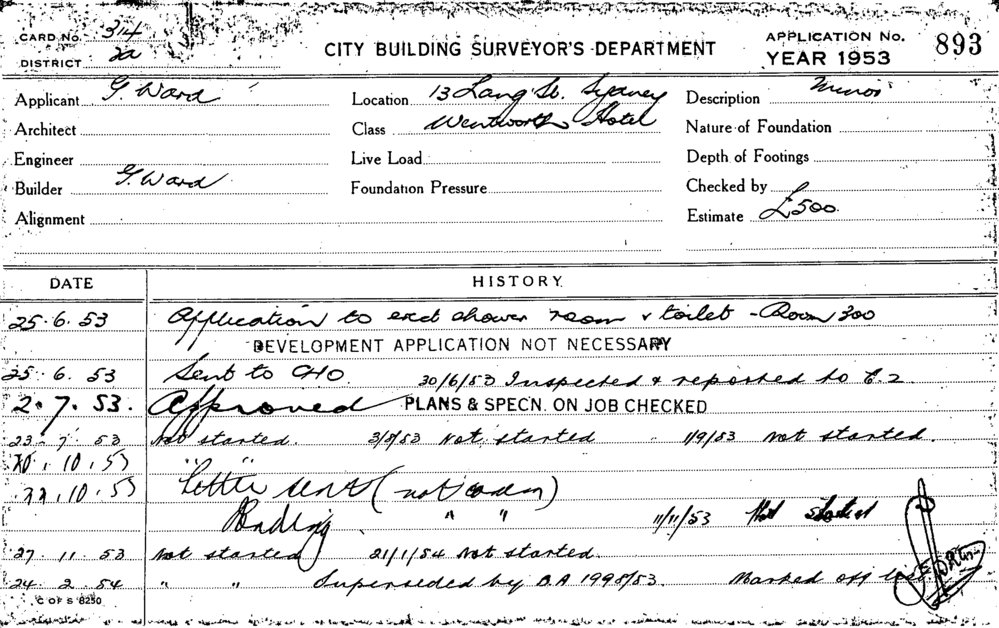 CARD No. 314
DISTRICT 2a
CITY BUILDING SURVEYOR'S DEPARTMENT
APPLICATION No. 893
YEAR 1953
Applicant G. Ward
Location 13 Lang St. Sydney
Description Minor
Architect
Class Wentworth Hotel
Nature of Foundation
Engineer
Live Load
Depth of Footings
Builder G. Ward
Foundation Pressure
Checked by
Alignment
Estimate £500
DATE HISTORY
25.6.53 Application to erect shower room & toilet - Room 300
DEVELOPMENT APPLICATION NOT NECESSARY
25.6.53 Sent to CHO. 30/6/53 Inspected & reported to E.2.
2.7.53. Approved PLANS & SPECN. ON JOB CHECKED
23.7.53 Not started. 3/8/53 Not started 1/9/53 Not started.
10.53 " "
10.53 Letter sent (not
Pending " " 11/11/53 Not started
27.11.53 Not started 21/1/54 Not started.
24.2.54 " " Superseded by B.A 1998/53. Marked off
C OF S 8250